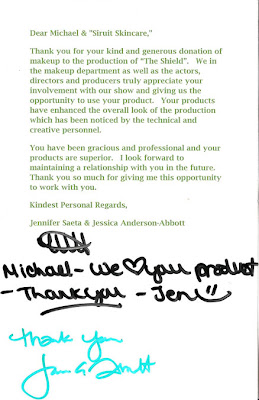 Dear Michael & "Siruit Skincare,"
Thank you for your kind and generous donation of
makeup to the production of "The Shield". We in
the makeup department as well as the actors,
directors and producers truly appreciate your
involvement with our show and giving us the
opportunity to use your product. Your products
have enhanced the overall look of the production
which has been noticed by the technical and
creative personnel.
You have been gracious and professional and your
products are superior. I look forward to
maintaining a relationship with you in the future.
Thank you so much for giving me this opportunity
to work with you.
Kindest Personal Regards,
Jennifer Saeta & Jessica Anderson-Abbott
Michael - We ♡ you product
- Thank you - Jen
Thank you